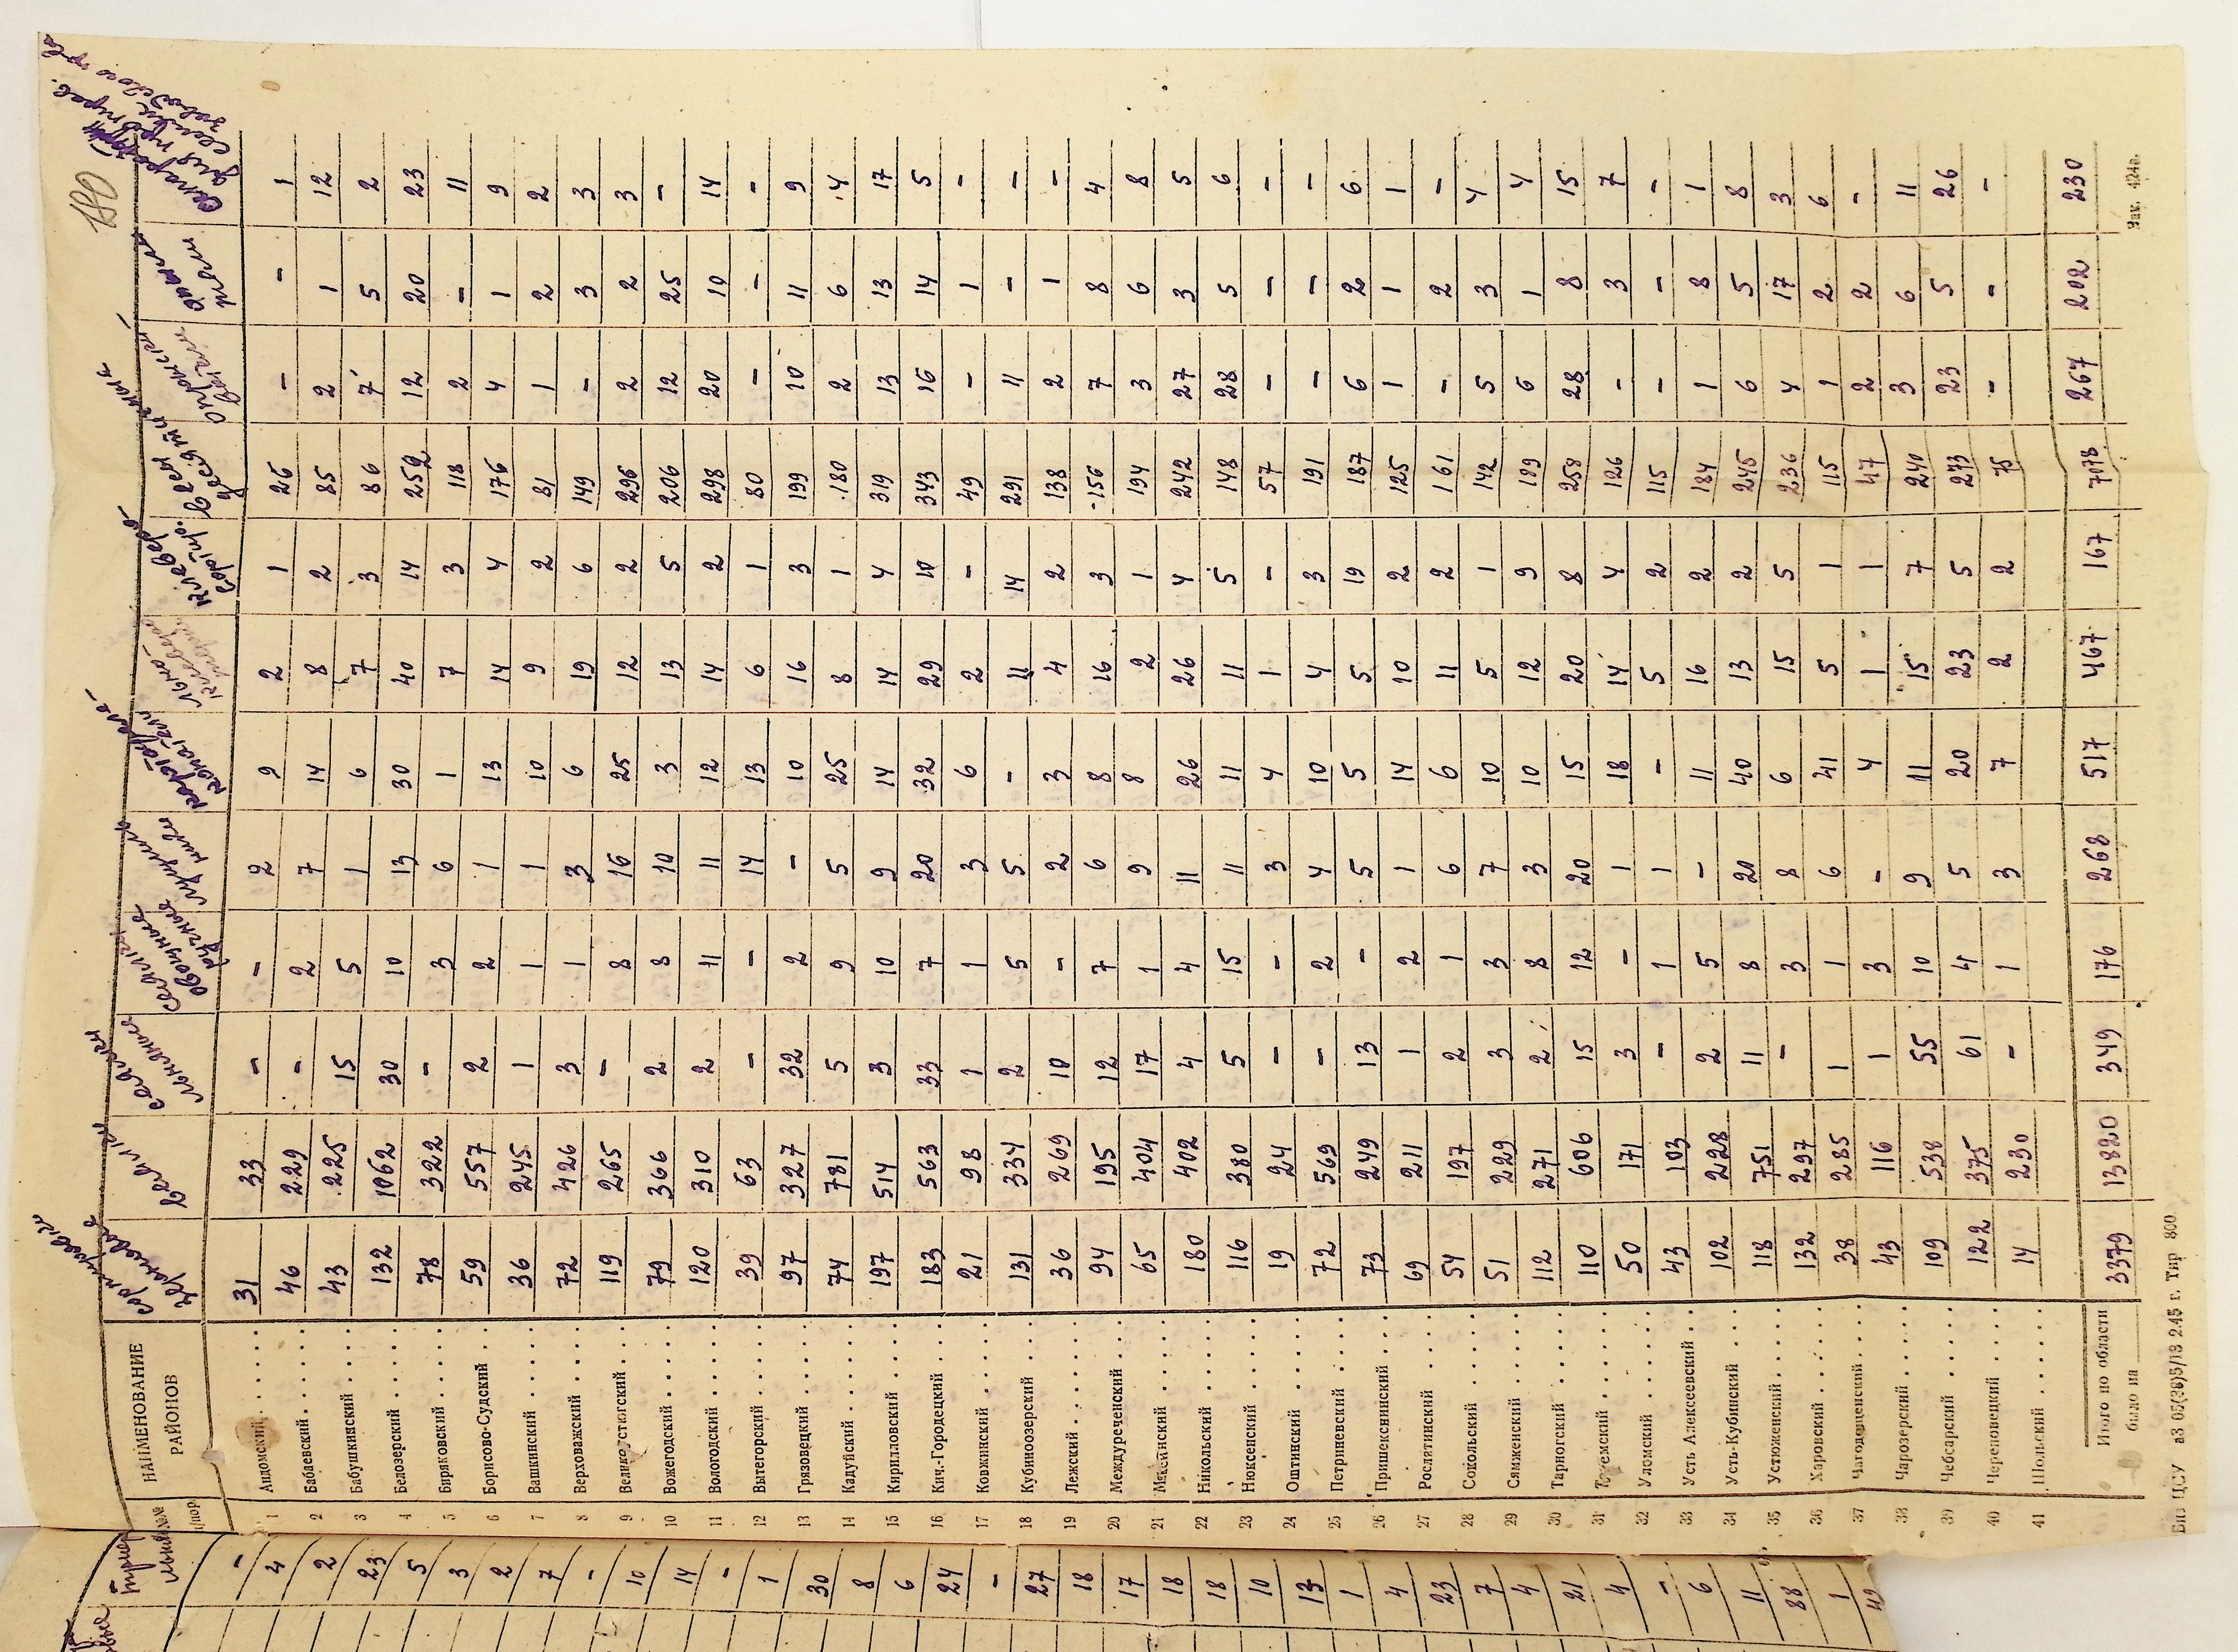 180
НАИМЕНОВАНИЕ РАЙОНОВ сортировки Веялки сеялки льняные сеялки овощные ручные картофеле- льно- клеверо- Всего запашники
№№ п/пор
1 Андомский 31 33 - - 2 9 2 1 26 - - 1
2 Бабаевский 46 229 - 2 7 14 8 2 85 2 1 12
3 Бабушкинский 43 225 15 5 1 6 7 3 86 7 5 2
4 Белозерский 132 1062 30 10 13 30 40 14 252 12 20 23
5 Биряковский 78 322 - 3 6 1 7 3 118 2 - 11
6 Борисово-Судский 59 557 2 2 1 13 14 4 176 4 1 9
7 Вашкинский 36 245 1 1 1 10 9 2 81 1 2 2
8 Верховажский 72 426 3 1 3 6 19 6 149 - 3 3
9 Великоустюгский 119 265 - 8 16 25 12 2 296 2 2 3
10 Вожегодский 79 366 2 8 10 3 13 5 206 12 25 -
11 Вологодский 120 310 2 11 11 12 14 2 298 20 10 14
12 Вытегорский 39 63 - - 14 13 6 1 80 - - -
13 Грязовецкий 97 327 32 2 - 10 16 3 199 10 11 9
14 Кадуйский 74 781 5 9 5 25 8 1 180 2 6 4
15 Кирилловский 197 514 3 10 9 14 14 4 319 13 13 17
16 Кич.-Городецкий 183 563 33 7 20 32 29 10 343 16 14 5
17 Ковжинский 21 98 1 1 3 6 2 - 49 - 1 -
18 Кубиноозерский 131 334 2 5 5 - 11 14 291 11 - -
19 Лежский 36 269 10 - 2 3 4 2 138 2 1 -
20 Междуреченский 94 195 12 7 6 8 16 3 156 7 8 4
21 Мяксинский 65 404 17 1 9 8 2 1 194 3 6 8
22 Никольский 180 402 4 4 11 26 26 4 242 27 3 5
23 Нюксенский 116 380 5 15 11 11 11 5 148 28 5 6
24 Оштинский 19 24 - - 3 4 1 - 57 - - -
25 Петриневский 72 569 - 2 4 10 4 3 191 - - -
26 Пришекснинский 73 249 13 - 5 5 5 19 187 6 2 6
27 Рослятинский 69 211 1 2 1 14 10 2 125 1 1 1
28 Сокольский 54 197 2 1 6 6 11 2 161 - 2 -
29 Сямженский 51 229 3 3 7 10 5 1 142 5 3 4
30 Тарногский 112 271 2 8 3 10 12 9 189 6 1 4
31 Тотемский 110 606 15 12 20 15 20 8 258 28 8 15
32 Уломский 50 171 3 - 1 18 14 4 126 - 3 7
33 Усть Алексеевский 43 103 - 1 1 - 5 2 115 - - -
34 Усть-Кубинский 102 228 2 5 - 11 16 2 184 1 8 1
35 Устюженский 118 751 11 8 20 40 13 2 245 6 5 8
36 Харовский 132 297 - 3 8 6 15 5 236 4 17 3
37 Чагодощенский 38 285 1 1 6 41 5 1 115 1 2 6
38 Чарозерский 43 116 1 3 - 4 1 1 47 2 2 -
39 Чебсарский 109 538 55 10 9 11 15 7 240 3 6 11
40 Череповецкий 122 375 61 4 5 20 23 5 273 23 5 26
41 Шольский 14 230 - 1 3 7 2 2 75 - - -
Итого по области 3379 13820 349 176 268 517 467 167 7078 267 202 230
было на
аЗ 05(36)5/13 2.45 г. Тир 800
Зак. 424а.
- 4 2 23 5 3 2 7 - 10 14 - 1 30 8 6 24 - 27 18 17 18 18 10 13 1 4 23 7 4 21 4 - 6 11 88 1 49